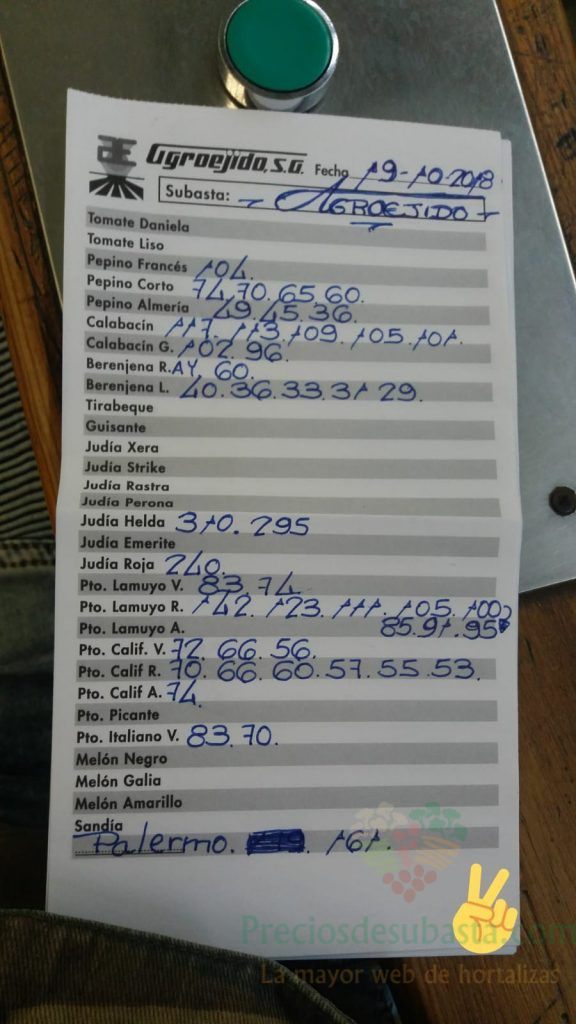 Agroejido, S.A. Fecha 19-10-2018
Subasta: - AGROEJIDO -
Tomate Daniela
Tomate Liso
Pepino Francés 104.
Pepino Corto 74.70.65.60.
Pepino Almería 49.45.36.
Calabacín 117. 113. 109. 105. 101.
Calabacín G. 102. 96.
Berenjena R.AY. 60.
Berenjena L. 40.36.33.31 29.
Tirabeque
Guisante
Judía Xera
Judía Strike
Judía Rastra
Judía Perona
Judía Helda 310. 295
Judía Emerite
Judía Roja 240.
Pto. Lamuyo V. 83.74
Pto. Lamuyo R. 142. 123. 111. 105. 100
Pto. Lamuyo A. 85.91.95
Pto. Calif. V. 72. 66. 56.
Pto. Calif R. 70. 66. 60. 57. 55. 53.
Pto. Calif A. 74.
Pto. Picante
Pto. Italiano V. 83.70.
Melón Negro
Melón Galia
Melón Amarillo
Sandía
Palermo. 161.
Preciosdesubasta.com
La mayor web de hortalizas